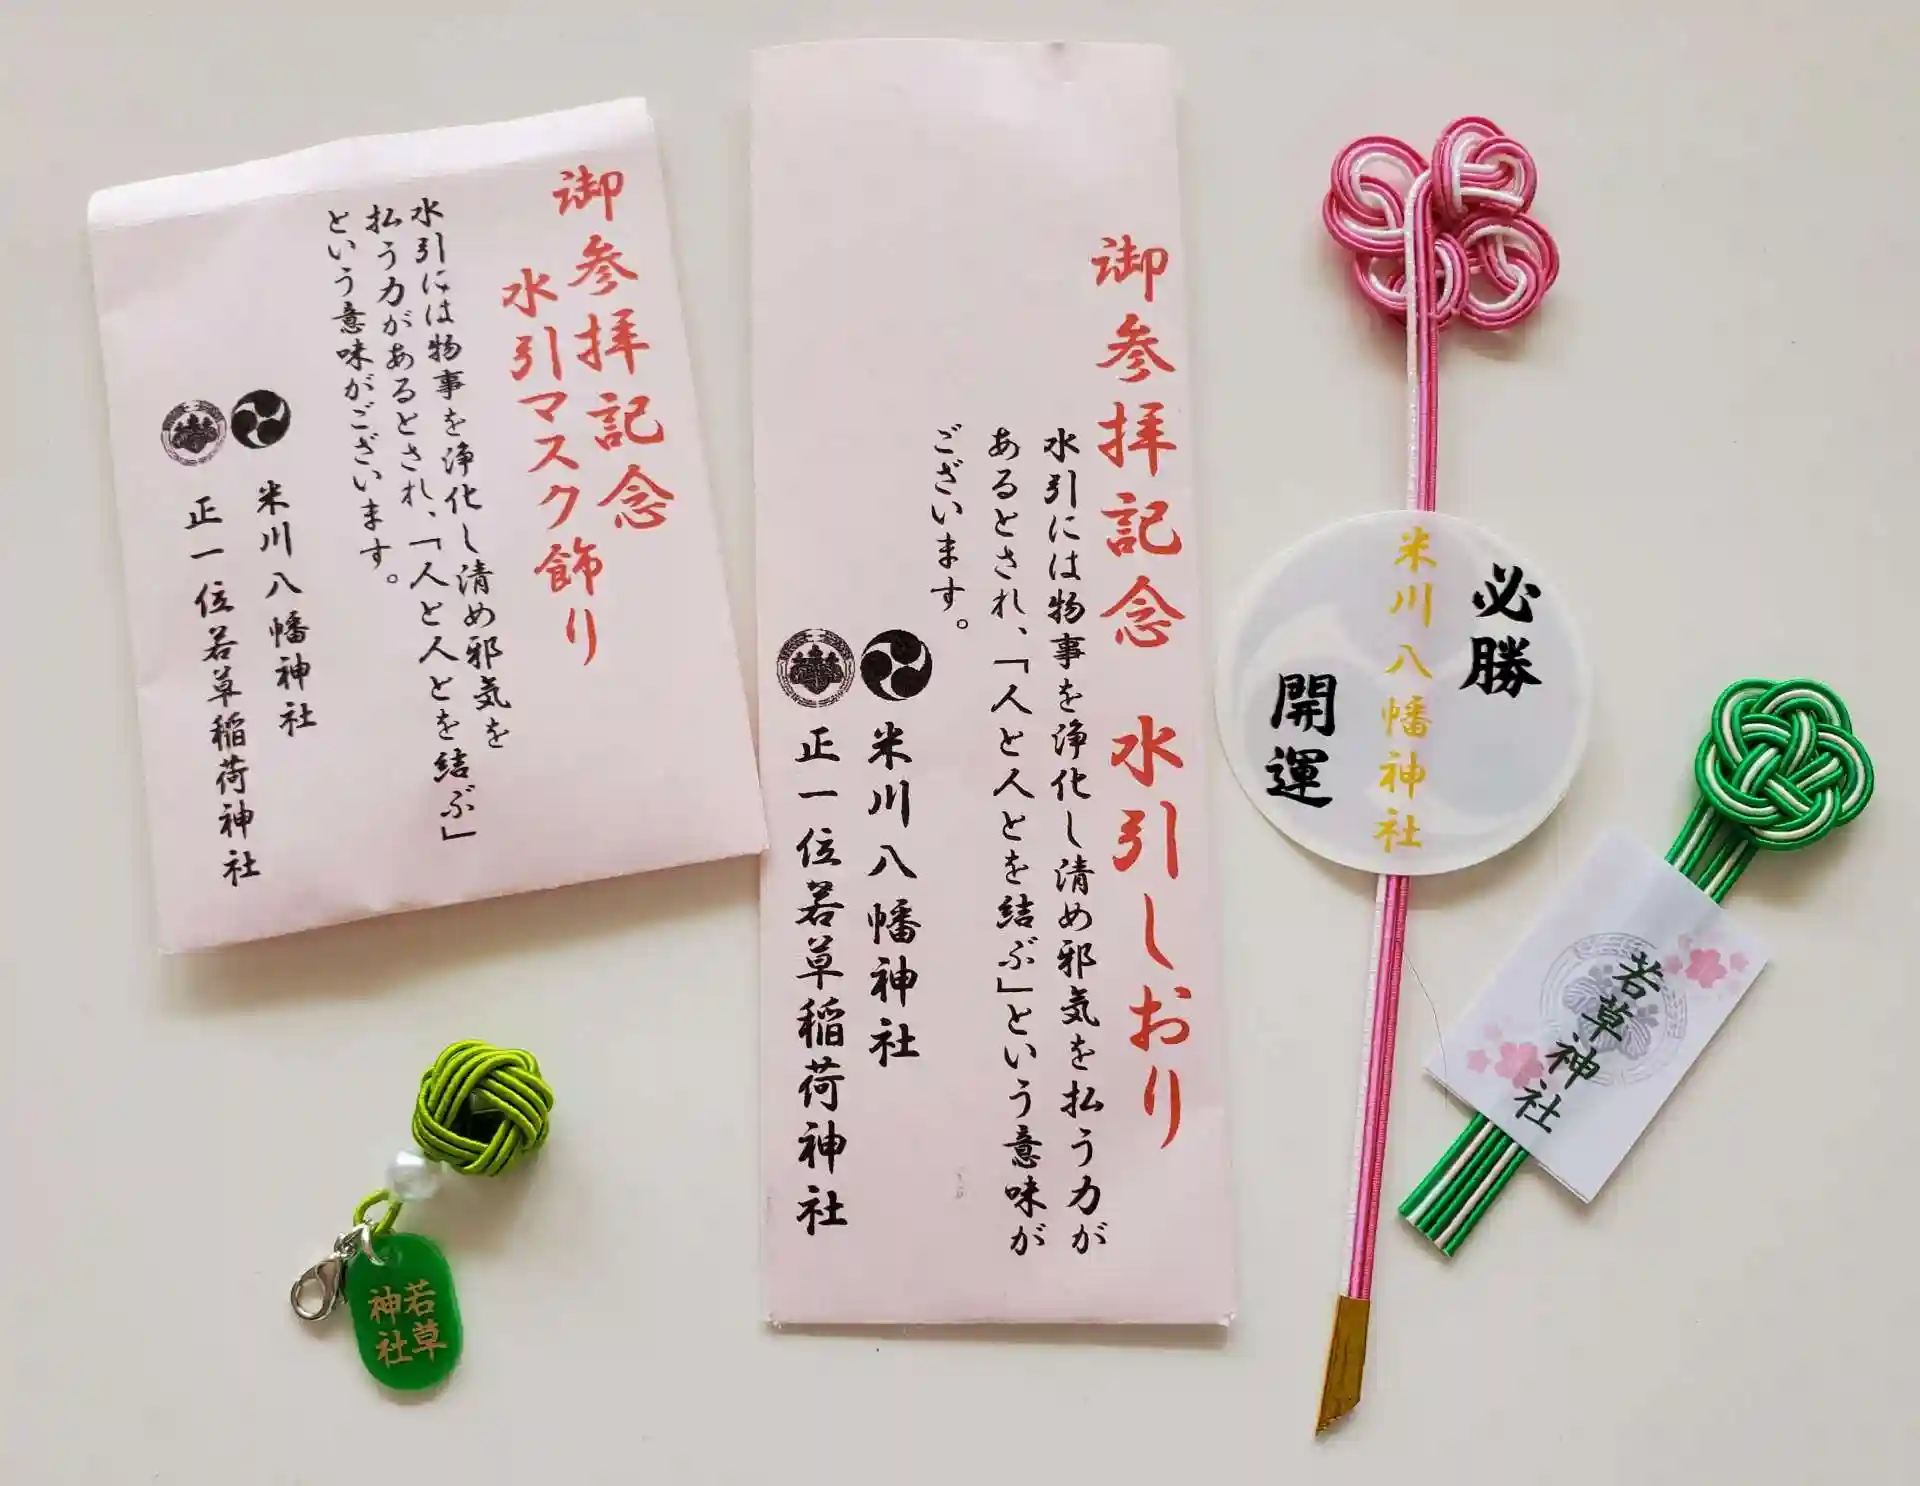 御参拝記念
水引マスク飾り
水引には物事を浄化し清め邪気を
払う力があるとされ、「人と人とを結ぶ」
という意味がございます。
米川八幡神社
正一位若草稲荷神社
御参拝記念 水引しおり
水引には物事を浄化し清め邪気を払う力が
あるとされ、「人と人とを結ぶ」という意味が
ございます。
米川八幡神社
正一位若草稲荷神社
必勝
米川八幡神社
開運
若草神社
若草
神社